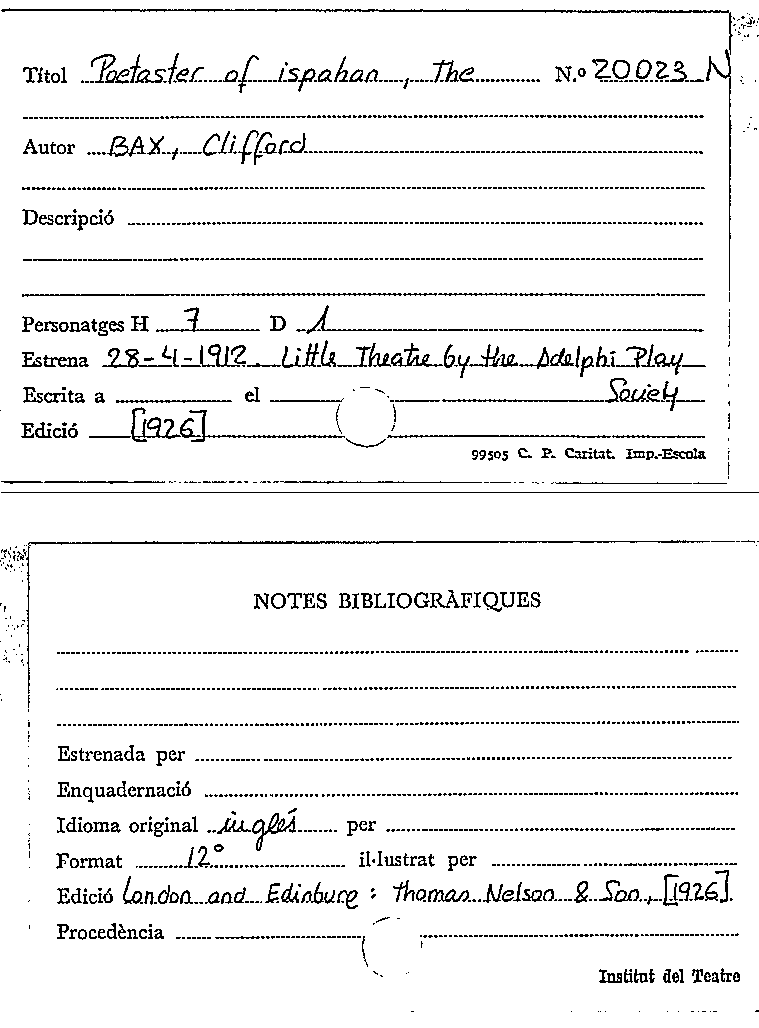 Títol Poetaster of ispahan, The N.º 20023 N
Autor BAX, Clifford
Descripció
Personatges H 7 D 1
Estrena 28-4-1912. Little Theatre by the Adelphi Play
Escrita a el Society
Edició [1926]
99505 C. P. Caritat. Imp.-Escola
NOTES BIBLIOGRÀFIQUES
Estrenada per
Enquadernació
Idioma original inglés per
Format 12º il·lustrat per
Edició London and Edinburg : Thomas Nelson & Son, [1926].
Procedència
Institut del Teatre